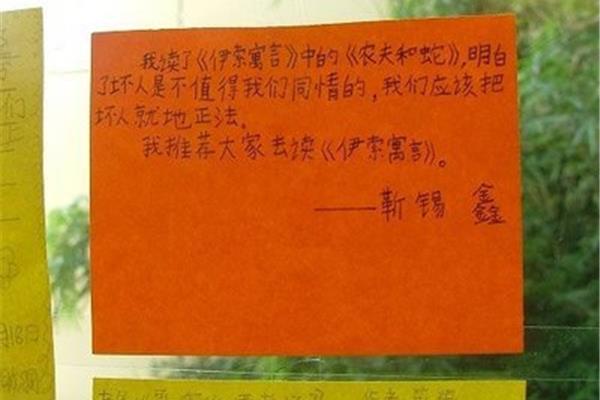 我读了《伊索寓言》中的《农夫和蛇》,明白
了坏人是不值得我们同情的,我们应该把
坏人就地正法。
我推荐大家去读《伊索寓言》。
——靳锡鑫
月18日